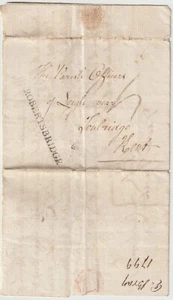 The Parish Officers
of Leigh near
Tonbridge
Kent
ROBERTSBRIDGE
1799